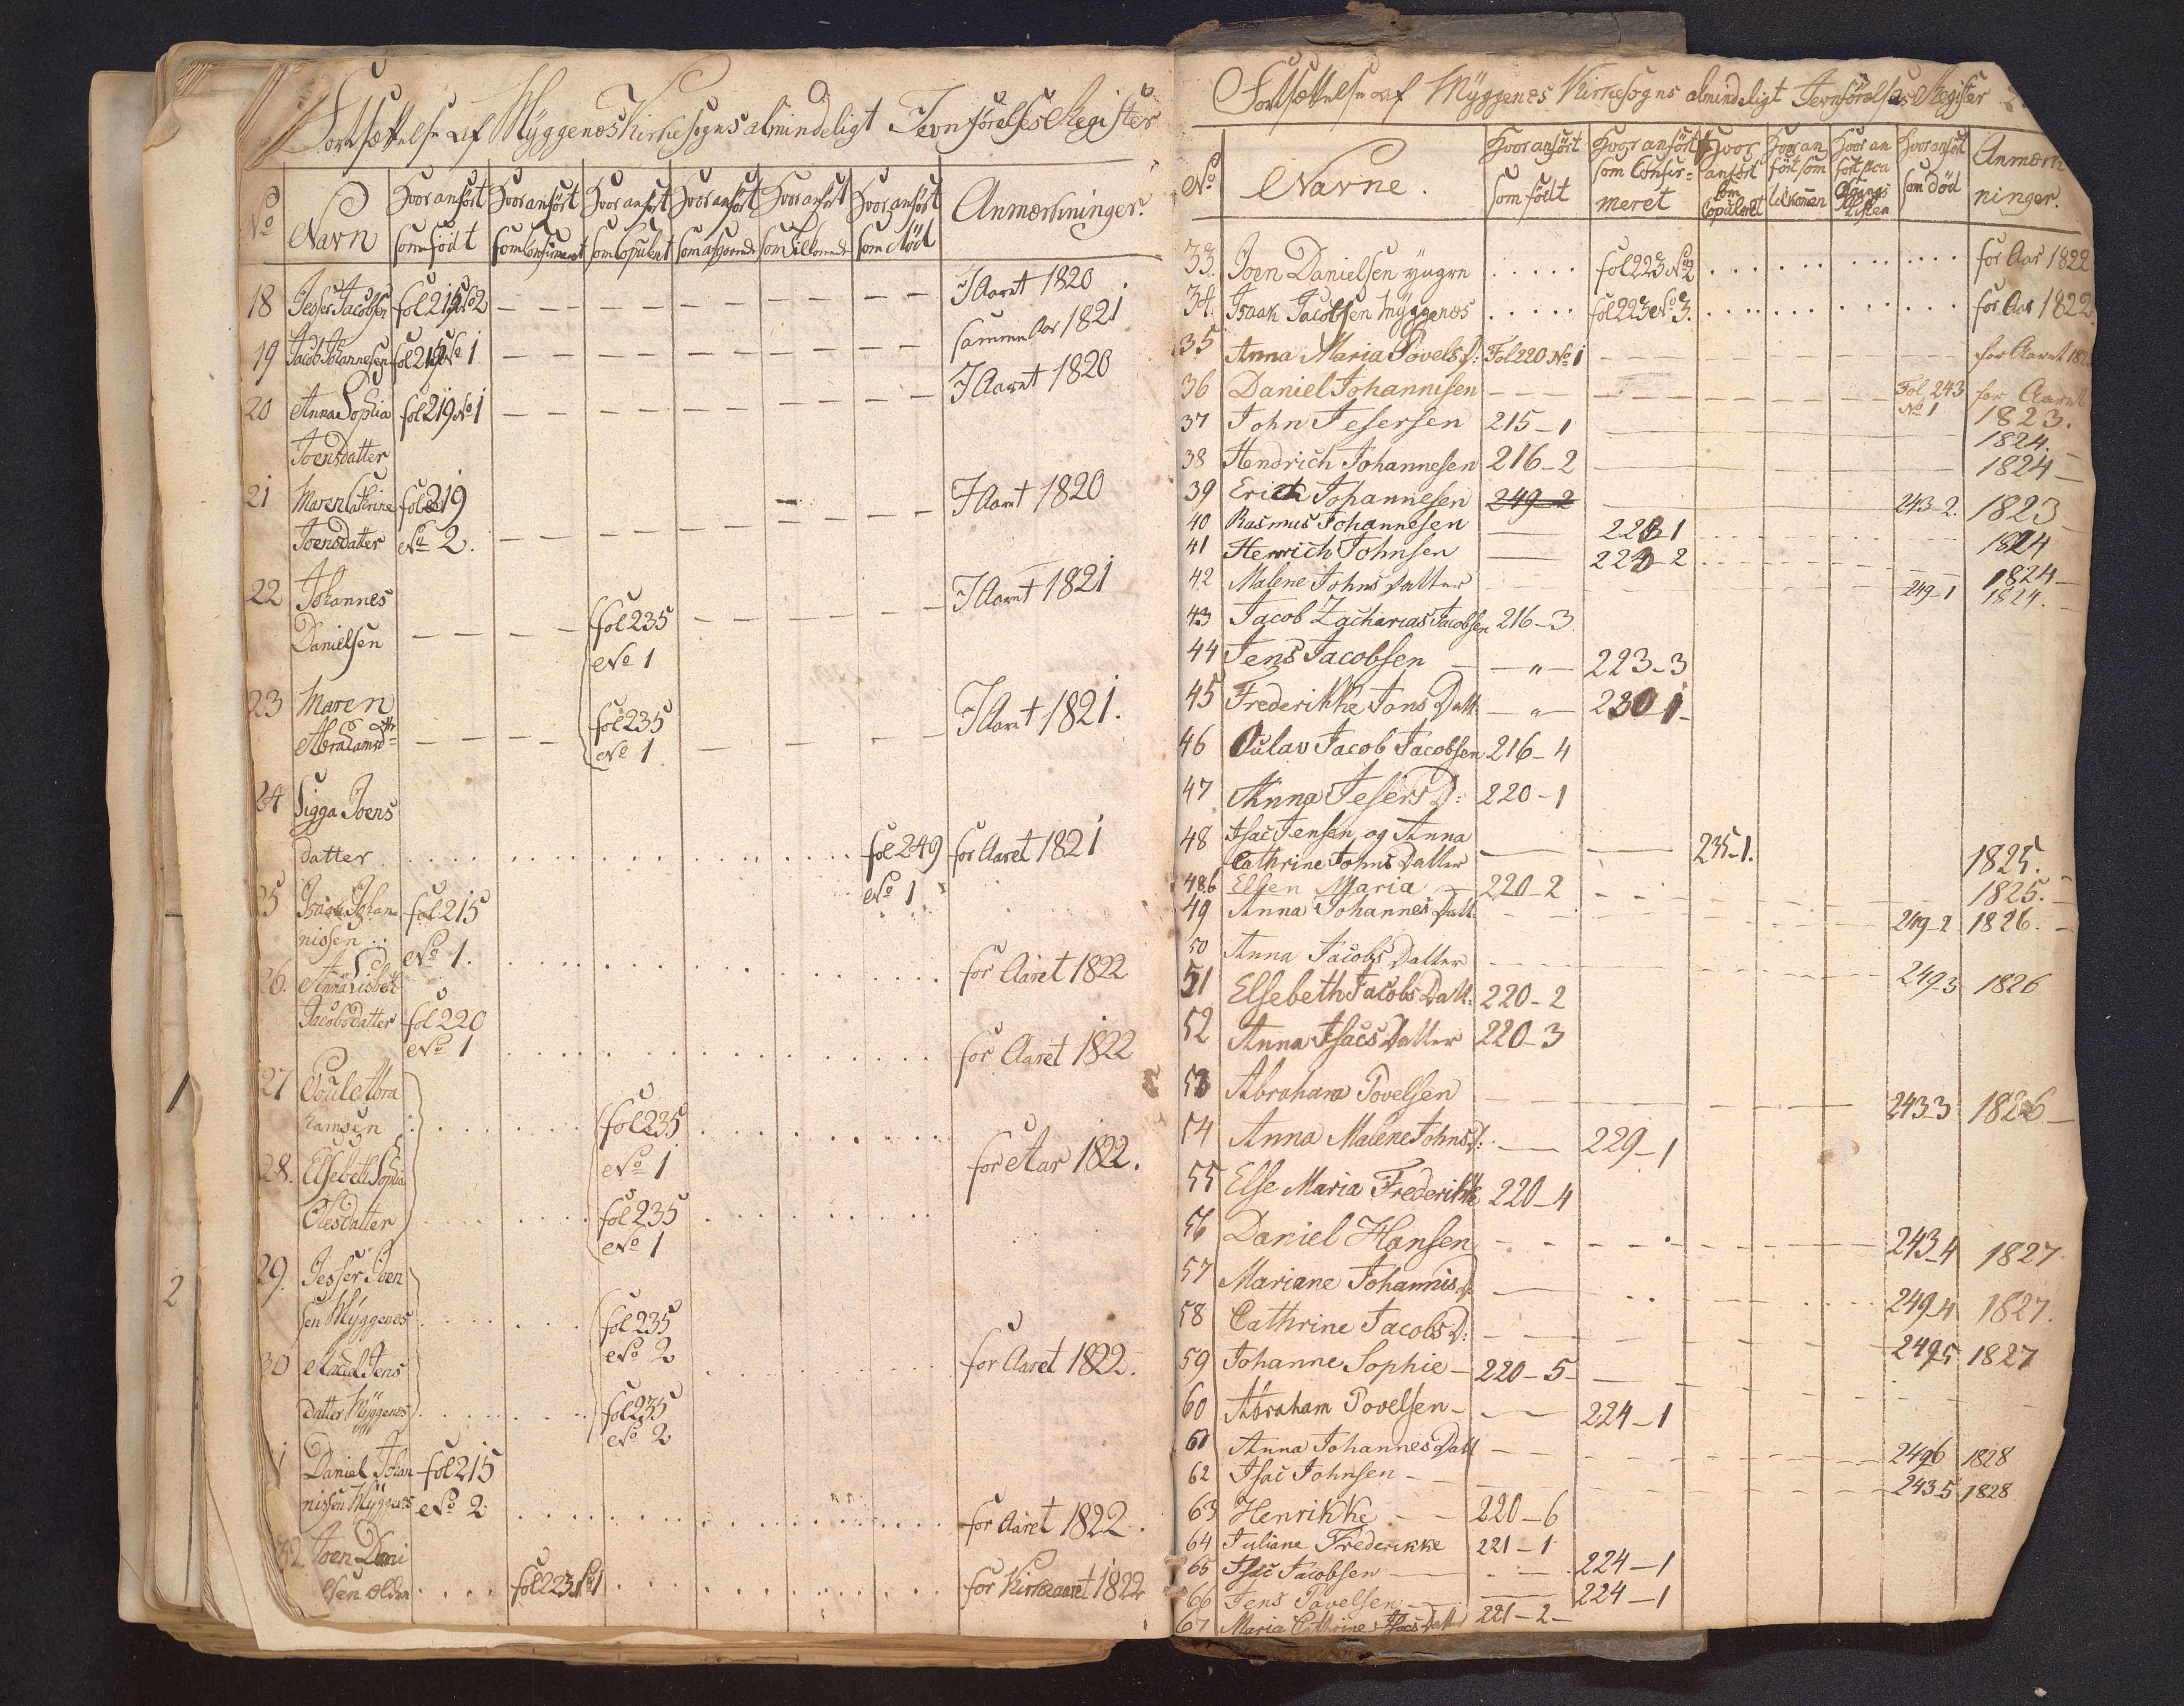 Fortsættelse af Myggenæs Kirkesogns almindeligt Jevnførelses Register
No
Navn
Hvor anført som født
Hvor anført som Confirmeret
Hvor anført som Copuleret
Hvor anført som afgaaende
Hvor anført som Tilkommende
Hvor anført som Død
Anmærkninger.
18 Jesser Jacobsen fol 215 No 2 — — — — — I Aaret 1820
19 Jacob Johannesen fol 215 No 1 — — — — — samme Aar 1821
20 Anna Sophia fol 219 No 1 — — — — — I Aaret 1820
Joensdatter
21 Maren Cathrine fol 219
Joensdatter No 2. — — — — — I Aaret 1820
22 Johannes
Danielsen — — fol 235 — — — I Aaret 1821
No 1
23 Maren
Abrahamsdtr — — fol 235 — — — I Aaret 1821.
No 1
24 Sigga Joens
datter . . . . . fol 249 for Aaret 1821
No 1
25 Isaak Johan fol 215
nissen .. No 1. . . . . . for Aaret 1822
26. Anna Lisbet
Jacobsdatter fol 220
No 1 . . . . . for Aaret 1822
27 Poul Abra
hamsen . . . fol 235 . . .
No 1 for Aar 1822.
28. Elsebeth Sophia
Olesdatter . . . fol 235 . . .
No 1
29. Jesser Joen
sen Myggenes . . . fol 235
No 2
30 Jens for Aaret 1822.
datter Myggenes . . . fol 235
No 2
1 Daniel Johan fol 215
nissen Myggenes No 2 . . . . . for Aaret 1822.
32. Joen Dani
elsen ældre . . . fol 223 No 1 . . . . . for Kirkeaaret 1822
1
2
Fortsættelse af Myggenes Kirkesogns almindeligt Jevnførelses Register
No
Navne.
Hvor anført som født
Hvor anført som Confirmeret
Hvor anført som Copuleret
Hvor anført som tilkommen
Hvor anført paa Afgangs Listen
Hvor anført som død
Anmærkninger.
33. Joen Danielsen yngre . . . . . fol 223 No 2 . . . . . for Aar 1822
34. Isaak Jacobsen Myggenes . . . . . fol 223 No 3. . . . . . for Aar 1822.
35 Anna Maria Povels D: Fol 220 No 1 — — — for Aaret 182
36 Daniel Johannisen — — — Fol 243 No 1 for Aaret 1823.
37 John Jesersen 215–1 1824.
38 Hendrich Johannesen 216–2 1824
39 Erich Johannesen 249–2 243–2. 1823
40 Rasmus Johannesen 223–1 1824
41 Henrich Johnsen 223–2 1824
42 Malene Johns Datter 249–1 1824.
43 Jacob Zacharias Jacobsen 216–3
44 Jens Jacobsen — „ — 223–3
45 Frederikke Jons Datt. — „ — 230–1
46 Oulav Jacob Jacobsen 216–4
47 Anna Jesers D: 220–1
48 Isac Jensen og Anna
Cathrine Johns Datter — — 235–1. 1825.
48.b Elsen Maria 220–2 1825.
49 Anna Johannes Datt. 249–2 1826.
50 Anna Jacobs Datter 249–3 1826
51 Elsebeth Jacobs Datt: 220–2
52 Anna Isacs Datter 220–3
53 Abraham Povelsen 243–3 1826
54 Anna Malene Johns D: — 229–1
55 Else Maria Frederikke 220–4
56 Daniel Hansen 243–4 1827
57 Mariane Johannis D. 249–4 1827.
58 Cathrine Jacobs D: 249–5 1827
59 Johanne Sophie — 220–5
60 Abraham Povelsen — — 224–1
61 Anna Johannes Datt 249–6 1828
62 Isac Johnsen 243–5 1828
63 Henrikke 220–6
64 Juliane Frederikke 221–1
65 Isac Jacobsen — 224–1
66 Jens Povelsen — 224–1
67 Maria Cathrine Isacs Datter 221–2